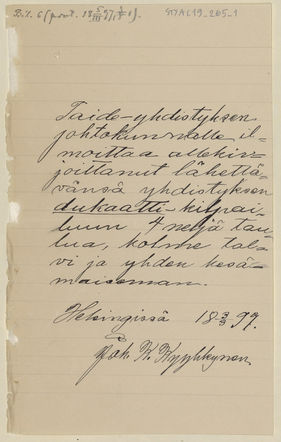 STYAC19_265_1
Taide-yhdistyksen
johtokunnalle il-
moittaa allekir-
joittanut lähettä-
vänsä yhdistyksen
dukaatti-kilpai-
luun 4 neljä tau-
lua, kolme tal-
vi ja yhden kesä-
maiseman.
Helsingissä 18 3/3 97.
Jak. K. Kyyhkynen.